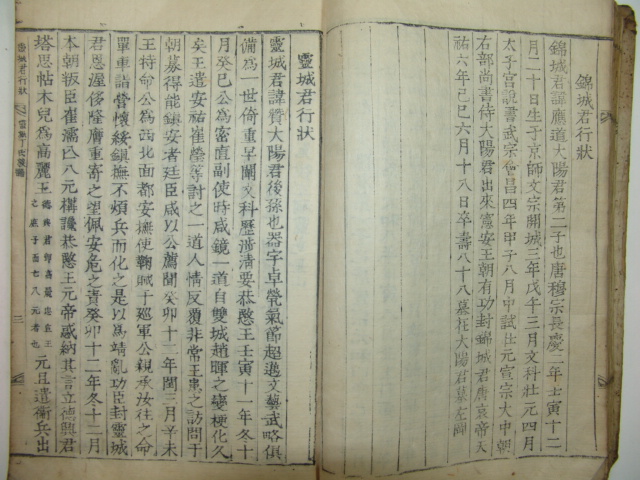 錦城君行狀
錦城君諱應道大陽君第二子也唐穆宗長慶二年壬寅十二
月二十日生于京師文宗開城三年戊午三月文科壯元四月
太子宮說書武宗會昌四年甲子八月中試壯元宣宗大中朝
右部尚書侍大陽君出來憲安王朝有功封錦城君唐哀帝天
祐六年己巳六月十八日卒壽八十八墓在大陽君墓左岡
靈城君行狀
靈城君諱贊大陽君後孫也器宇卓犖氣節超邁文藝武略俱
備為一世倚重早闡文科歷敭清要恭愍王壬寅十一年冬十
月癸巳公為密直副使時咸鏡一道自雙城趙暉之變梗化久
矣王遣安祐崔瑩等討之一道人情反覆非常王患之訪問于
朝募得能鎮安者廷臣咸以公薦聞癸卯十二年閏三月辛未
王特命公為西北面都安撫使鞠賊于巡軍公親承汝往之命
單車詣營懷綏鎮撫不煩兵而化之是以為靖亂功臣封靈城
君恩渥侈隆膺重寄之望佩安危之責癸卯十二年冬十二月
本朝叛臣崔濡以八元構讒恭愍王元帝惑納其言立德興君
塔思帖木兒為高麗王 元且遣衛兵出
靈城君行狀
三